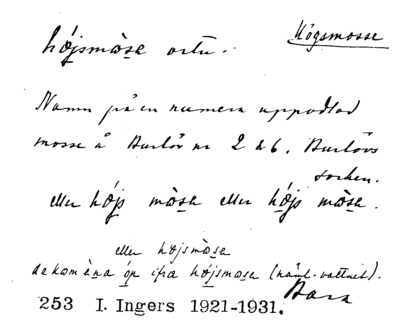 Högsmosse
hǿjsmòse ortn.
Namn på en numera uppodlad
mosse å Burlöv nr 2 & 6. Burlövs
socken.
eller hǿjs mòse eller hǿjs mòse.
eller højsmòse
de komèna óp ifra hǿjsmose (näml. vattnet).
Bara
253 I. Ingers 1921-1931.